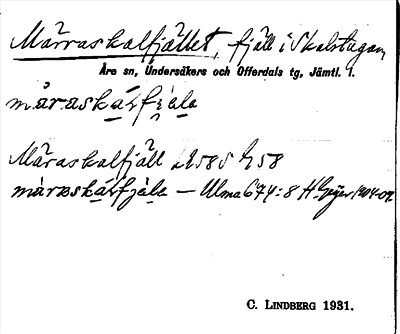 Märraskalfjället, fjäll i Skalstugan,
Åre sn, Undersåkers och Offerdals tg, Jämtl. l.
måraskárfjäla
Märaskalfjäll LA585 h58
måraskárfjäla — Ulma 674:8 H. Geijer 1904-07
C. LINDBERG 1931.